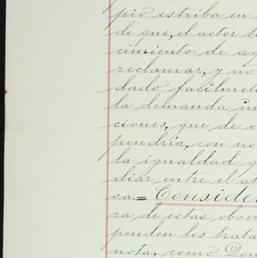 pio estriba en
de que, el actor t
cimiento de ag
reclamar, y no
dado facilmen
la demanda in
ciones, que de o
pondría, con no
la igualdad q
diar entre el at
sa = Conside
ra de estas obser
penden los trata
nota, como Don